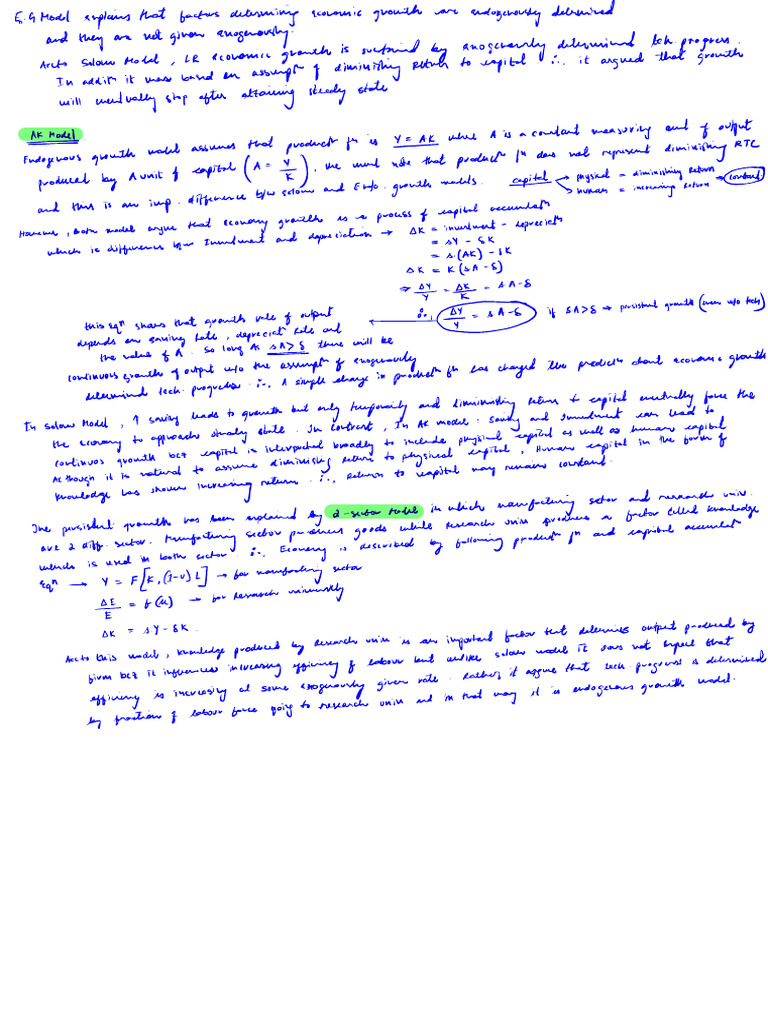 E.G Model explains that factors determining economic growth are endogenously determined
and they are not given exogenously.
Acc to Solow Model, LR economic growth is sustained by exogenously determined tech progress.
In additn it was based on assumptn of diminishing return to capital ∴ it argued that growth
will eventually stop after attaining steady state
AK Model
Endogenous growth model assumes that productn fn is Y = AK where A is a constant measuring amt of output
produced by A unit of capital (A = Y/K), we must note that productn fn does not represent diminishing RTC
and this is an imp. difference b/w solow and Endo. growth models. capital → physical = diminishing Return
→ Human = increasing Return → constant
However, Both model argue that economy growth is a process of capital accumulatn
which is difference b/w Investment and depreciation → ΔK = investment - depreciatn
= sY - δK
= s.(AK) - δK
ΔK = K(sA - δ)
⇒ ΔY/Y = ΔK/K = sA - δ
∴, ΔY/Y = sA - δ if sA > δ → persistent growth (even w/o tech)
this eqn shows that growth rate of output
depends on saving rate, depreciatn rate and
the value of A. So long as sA > δ there will be
continuous growth of output w/o the assumptn of exogenously
determined tech. progression ∴ A simple change in productn fn has changed the predictn about economic growth
In solow Model, ↑ saving leads to growth but only temporarily and diminishing return to capital eventually force the
the economy to approach steady state. In contrast, In AK model: Saving and Investment can lead to
continuos growth bcz capital is interpreted broadly to include physical capital as well as human capital
Although it is natural to assume diminishing return to physical capital, Human capital in the form of
knowledge has shown increasing return. ∴ Return to capital may remains constant.
The persistent growth has been explained by 2-sector Model in which manufacturing sector and research univ.
are 2 diff. sector. Manufacturing sector produces goods while research univ produces a factor called knowledge
which is used in both sector ∴ Economy is described by following productn fn and capital accumulatn
Eqn → Y = F[K, (1-u) L] → for manufacturing sector
ΔE/E = g(u) → for Research university
ΔK = sY - δK.
Acc to this model, knowledge produced by Research univ is an important factor that determines output produced by
firm bcz it influences increasing efficiency of labour but unlike solow model it does not expect that
efficiency is increasing at some exogenously given rate. Rather, it assume that tech progress is determined
by fraction of labour force going to research univ and in that way it is endogenous growth model.